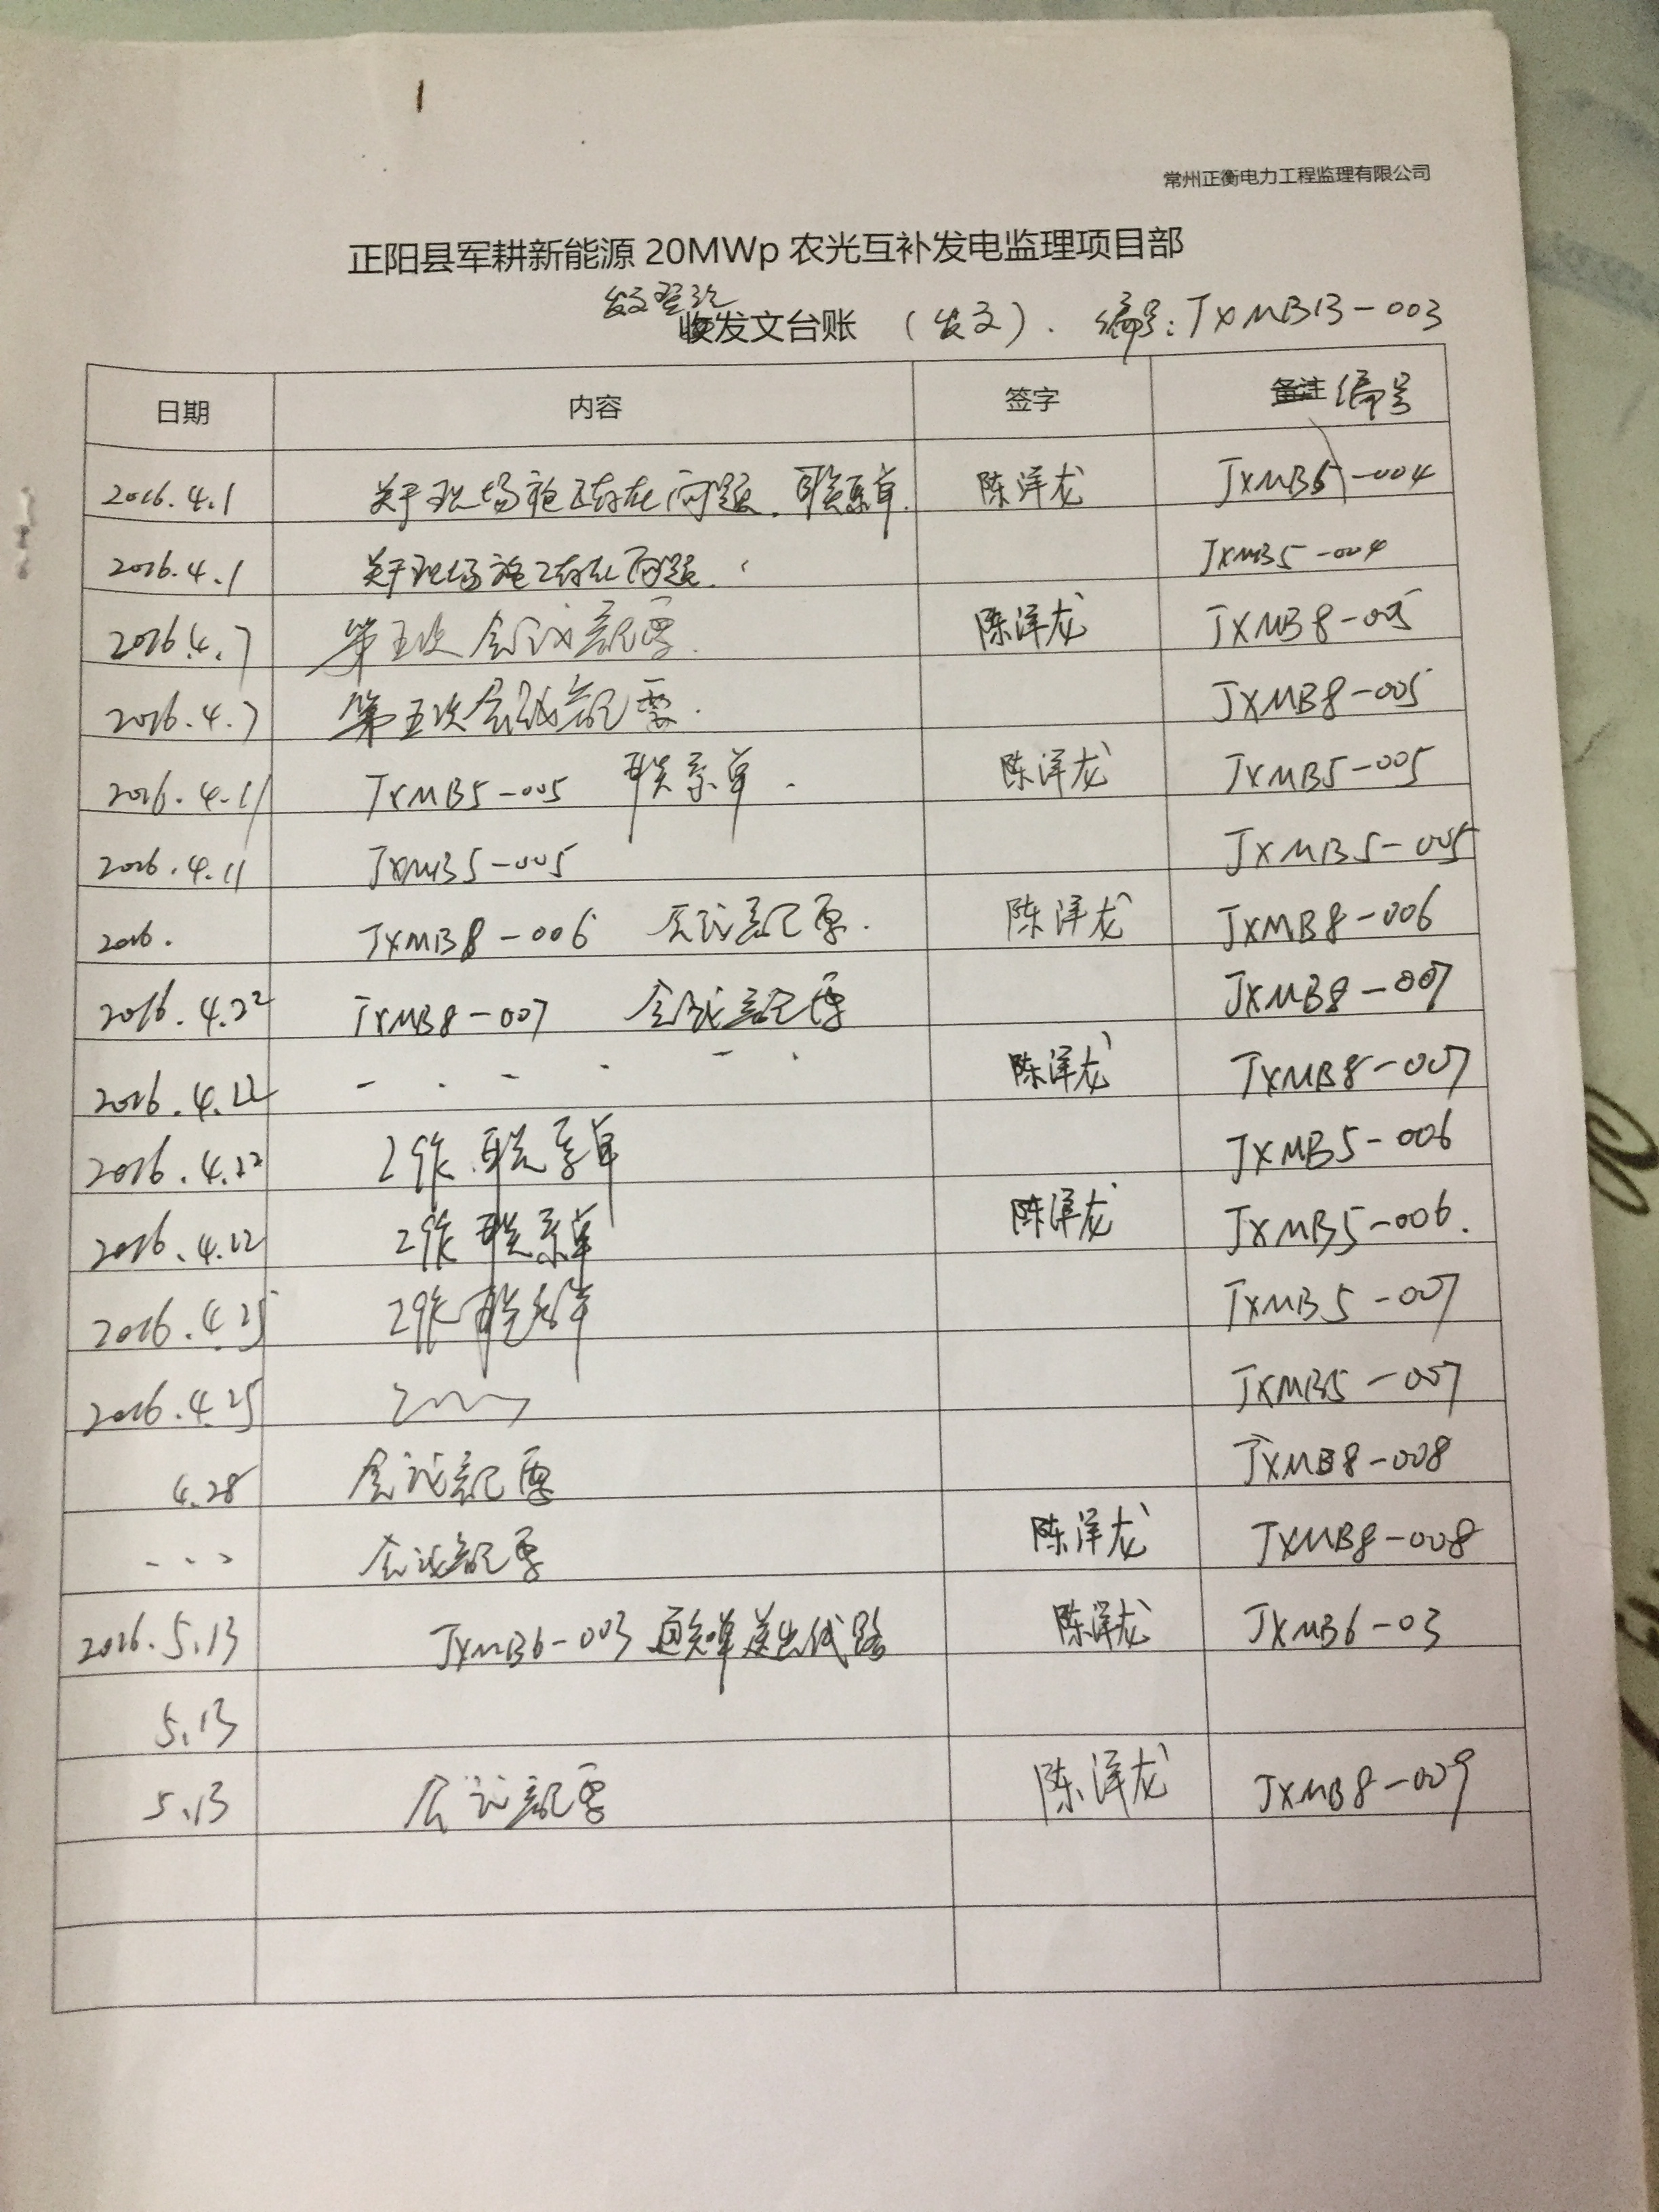 常州正衡电力工程监理有限公司
正阳县军耕新能源 20MWp 农光互补发电监理项目部
发文登记
收发文台账 (发文). 编号: JXMB13-003
日期 内容 签字 备注 编号
2016.4.1 关于现场施工存在问题. 联系单. 陈洋龙 JXMB5-004
2016.4.1 关于现场施工存在问题. JXMB5-004
2016.4.7 第五次会议纪要. 陈洋龙 JXMB8-005
2016.4.7 第五次会议纪要. JXMB8-005
2016.4.11 JXMB5-005 联系单. 陈洋龙 JXMB5-005
2016.4.11 JXMB5-005 JXMB5-005
2016. JXMB8-006 会议纪要. 陈洋龙 JXMB8-006
2016.4.22 JXMB8-007 会议纪要 JXMB8-007
2016.4.22 陈洋龙 JXMB8-007
2016.4.22 工作联系单 JXMB5-006
2016.4.22 工作联系单 陈洋龙 JXMB5-006.
2016.4.25 工作联系单 JXMB5-007
2016.4.25 JXMB5-007
4.28 会议纪要 JXMB8-008
会议纪要 陈洋龙 JXMB8-008
2016.5.13 JXMB6-003 通知单送出线路 陈洋龙 JXMB6-03
5.13
5.13 会议纪要 陈洋龙 JXMB8-009